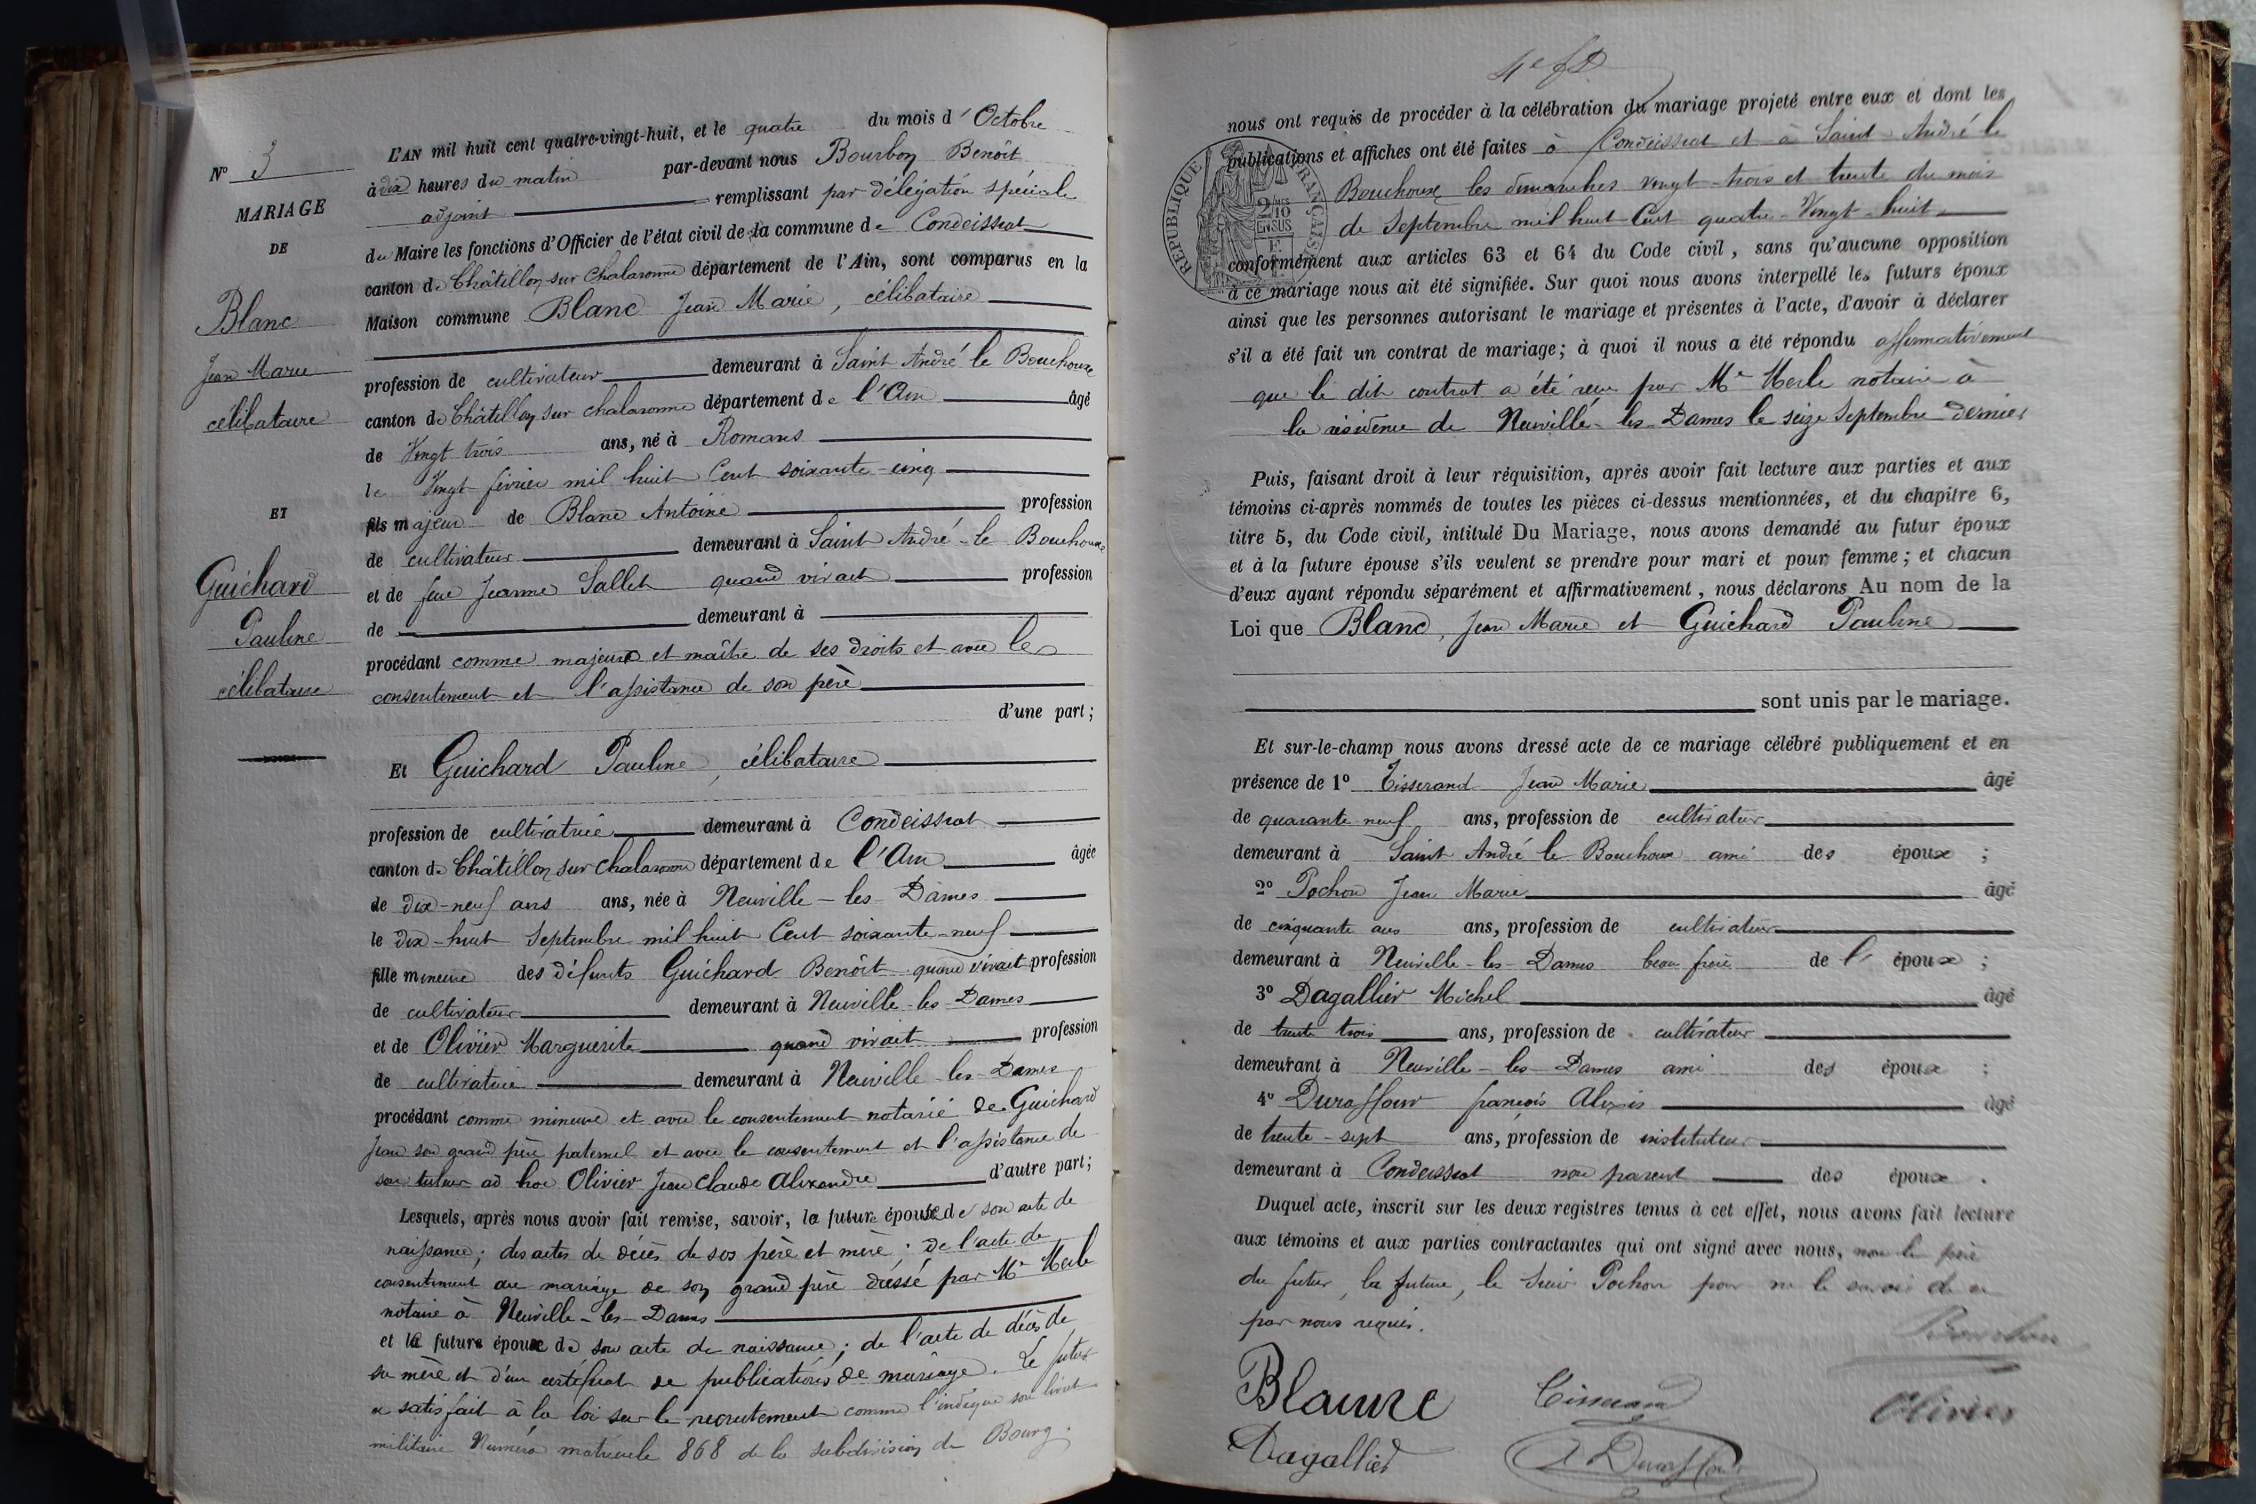 N° 3
MARIAGE
DE
Blanc
Jean Marie
célibataire
ET
Guichard
Pauline
célibataire
L'AN mil huit cent quatre-vingt-huit, et le quatre du mois d'Octobre
à dix heures du matin par-devant nous Bourbon Benoît
adjoint remplissant par délégation spéciale
du Maire les fonctions d'Officier de l'état civil de la commune de Condeissiat
canton de Châtillon sur Chalaronne département de l'Ain, sont comparus en la
Maison commune Blanc Jean Marie, célibataire
profession de cultivateur demeurant à Saint André le Bouchoux
canton de Châtillon sur chalaronne département de l'Ain âgé
de Vingt trois ans, né à Romans
le Vingt février mil huit Cent soixante-cinq
fils majeur de Blanc Antoine profession
de cultivateur demeurant à Saint André-le Bouchoux
et de feue Jeanne Sallet quand vivait profession
de demeurant à
procédant comme majeur et maître de ses droits et avec le
consentement et l'assistance de son père
d'une part;
Et Guichard Pauline, célibataire
profession de cultivatrice demeurant à Condeissiat
canton de Châtillon sur Chalaronne département de l'Ain âgée
de dix-neuf ans ans, née à Neuville-les-Dames
le dix-huit Septembre mil huit Cent soixante-neuf
fille mineure des défunts Guichard Benoît quand vivait profession
de cultivateur demeurant à Neuville-les-Dames
et de Olivier Marguerite quand vivait profession
de cultivatrice demeurant à Neuville-les-Dames
procédant comme mineure et avec le consentement notarié de Guichard
Jean son grand père paternel et avec le consentement et l'assistance de
son tuteur ad hoc Olivier Jean Claude Alexandre d'autre part;
Lesquels, après nous avoir fait remise, savoir, la future épouse de son acte de
naissance; des actes de décès de ses père et mère; de l'acte de
consentement au mariage de son grand père dressé par Me Merle
notaire à Neuville-les-Dames
et le future époux de son acte de naissance; de l'acte de décès de
sa mère et d'un certificat de publications de mariage. Le futur
a satisfait à la loi sur le recrutement comme l'indique son livret
militaire Numéro matricule 868 de la subdivision de Bourg.
nous ont requis de procéder à la célébration du mariage projeté entre eux et dont les
publications et affiches ont été faites à Condeissiat et à Saint-André le
Bouchoux les dimanches vingt-trois et trente du mois
de Septembre mil huit Cent quatre-Vingt-huit
RÉPUBLIQUE FRANÇAISE
2/10
EN SUS
conformément aux articles 63 et 64 du Code civil, sans qu'aucune opposition
à ce mariage nous ait été signifiée. Sur quoi nous avons interpellé les futurs époux
ainsi que les personnes autorisant le mariage et présentes à l'acte, d'avoir à déclarer
s'il a été fait un contrat de mariage; à quoi il nous a été répondu affirmativement
que le dit contrat a été reçu par Me Merle notaire à
la résidence de Neuville-les-Dames le seize Septembre dernier
Puis, faisant droit à leur réquisition, après avoir fait lecture aux parties et aux
témoins ci-après nommés de toutes les pièces ci-dessus mentionnées, et du chapitre 6,
titre 5, du Code civil, intitulé Du Mariage, nous avons demandé au futur époux
et à la future épouse s'ils veulent se prendre pour mari et pour femme; et chacun
d'eux ayant répondu séparément et affirmativement, nous déclarons Au nom de la
Loi que Blanc, Jean Marie et Guichard Pauline
sont unis par le mariage.
Et sur-le-champ nous avons dressé acte de ce mariage célébré publiquement et en
présence de 1° Tisserand Jean Marie âgé
de quarante neuf ans, profession de cultivateur
demeurant à Saint André le Bouchoux ami des époux;
2° Pochon Jean Marie âgé
de cinquante ans ans, profession de cultivateur
demeurant à Neuville-les-Dames beau frère de l'époux;
3° Dagallier Michel âgé
de trente trois ans, profession de cultivateur
demeurant à Neuville-les-Dames ami des époux;
4° Duraffour françois Alexis âgé
de trente-sept ans, profession de instituteur
demeurant à Condeissiat non parent des époux.
Duquel acte, inscrit sur les deux registres tenus à cet effet, nous avons fait lecture
aux témoins et aux parties contractantes qui ont signé avec nous, non le père
du futur, la future, le sieur Pochon pour ne le savoir de ce
par nous requis.
Tisserand
Olivier
Dagallier
Duraffour